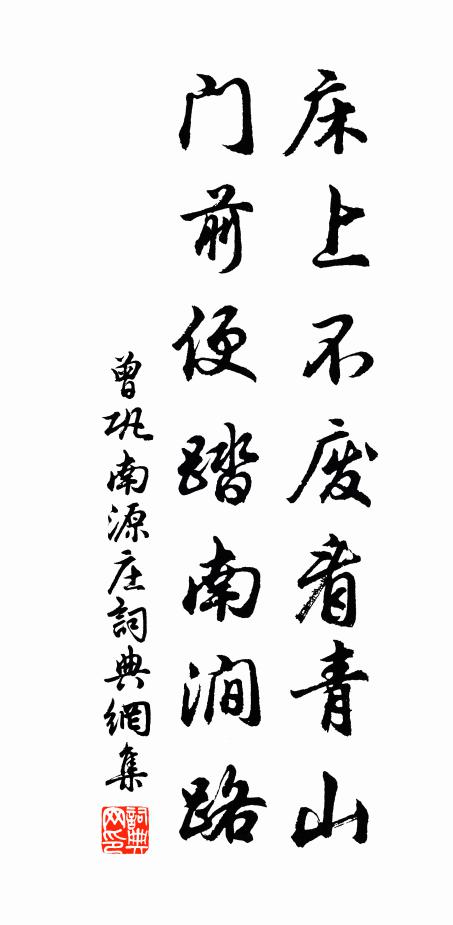 床上不废看青山
门前便踏南涧路
曾巩南源庄詞典網集
詞典网印